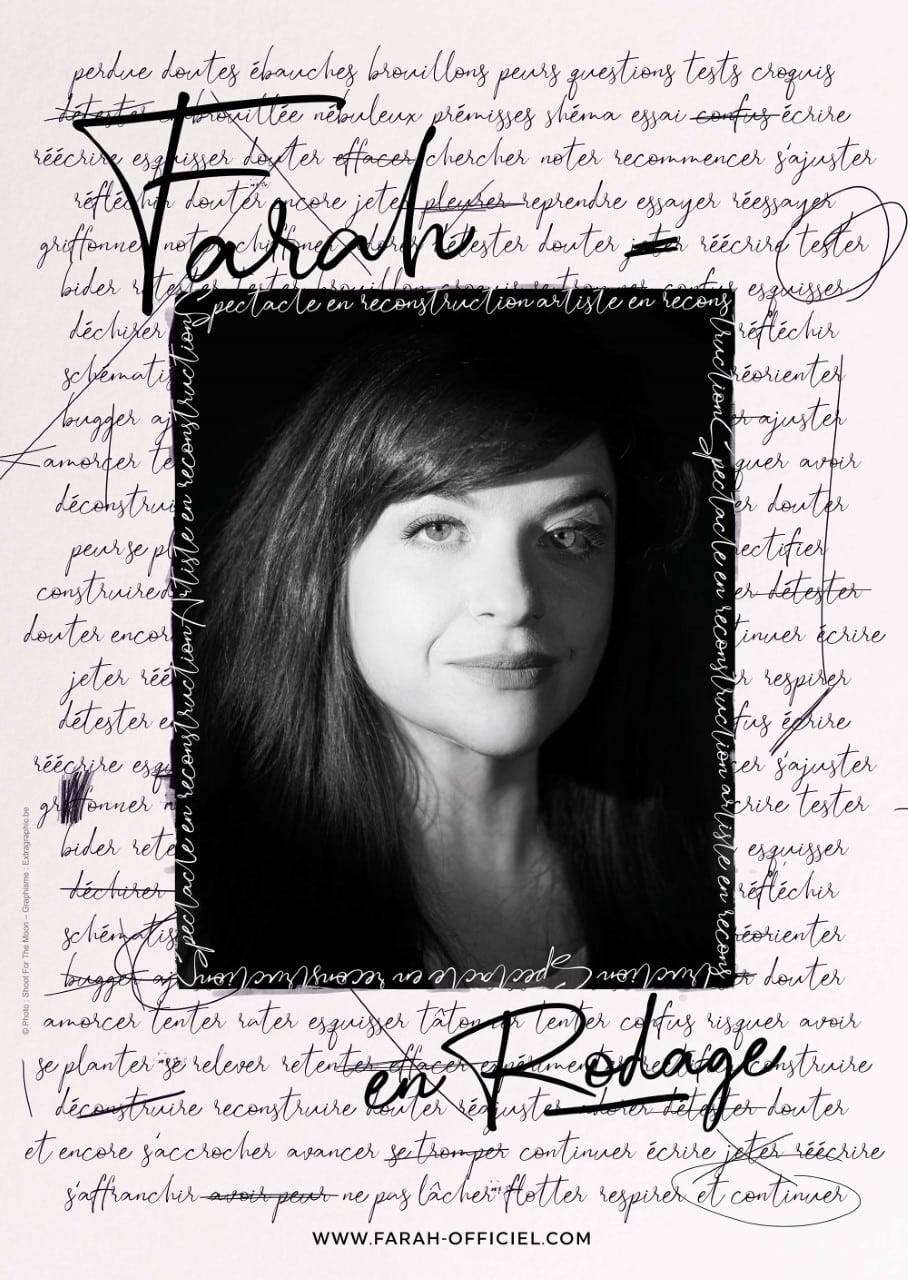 perdue doutes ébauches brouillons peurs questions tests croquis
détester embrouillée nébuleux prémisses shéma essai confus écrire
réécrire esquisser douter effacer chercher noter recommencer s'ajuster
réfléchir douter encore jeter pleurer reprendre essayer réessayer
Farah
griffonner noter chiffoner adorer détester douter jeter réécrire tester
bider esquisser
Spectacle en reconstruction artiste en reconstruction
Spectacle en reconstruction artiste en reconstruction
Spectacle en reconstruction
Spectacle en reconstruction Artiste en reconstruction
déchirer réfléchir
réorienter
bugger ajuster
amorcer avoir
douter
peur se rectifier
construire détester
douter encore continuer écrire
jeter respirer
détester écrire
réécrire s'ajuster
griffonner écrire tester
bider esquisser
déchirer réfléchir
réorienter
bugger douter
amorcer tenter rater esquisser tâtonner tenter confus risquer avoir
se planter se relever retenter effacer expérimenter rectifier construire
en Rodage
déconstruire reconstruire douter réajuster adorer détester douter
et encore s'accrocher avancer se tromper continuer écrire jeter réécrire
s'affranchir avoir peur ne pas lâcher flotter respirer et continuer
WWW.FARAH-OFFICIEL.COM
© Photo : Shoot For The Moon – Graphisme : Extragraphic.be